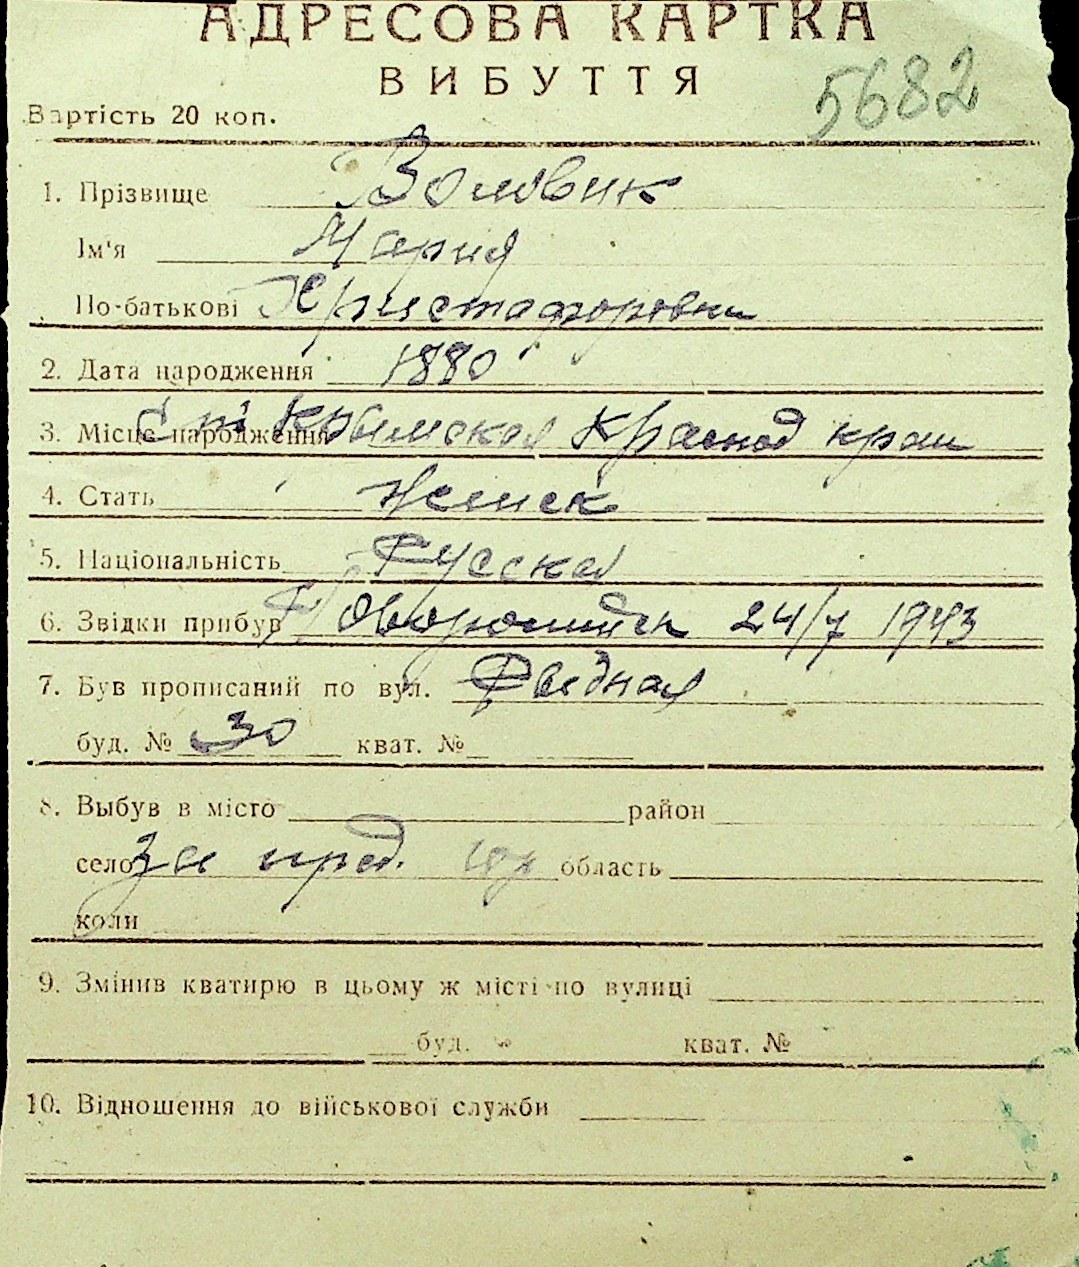 АДРЕСОВА КАРТКА
ВИБУТТЯ
5682
Вартість 20 коп.
1. Прізвище Воловик
Ім'я Мария
По-батькові Христафоровна
2. Дата народження 1880
3. Місце народження Крымская Краснод край
4. Стать женск
5. Національність Русская
6. Звідки прибув 24/7 1943
7. Був прописаний по вул.
буд. № 30 кват. №
8. Выбув в місто район
село за пред. область
коли
9. Змінив кватирю в цьому ж місті по вулиці
буд. № кват. №
10. Відношення до військової служби